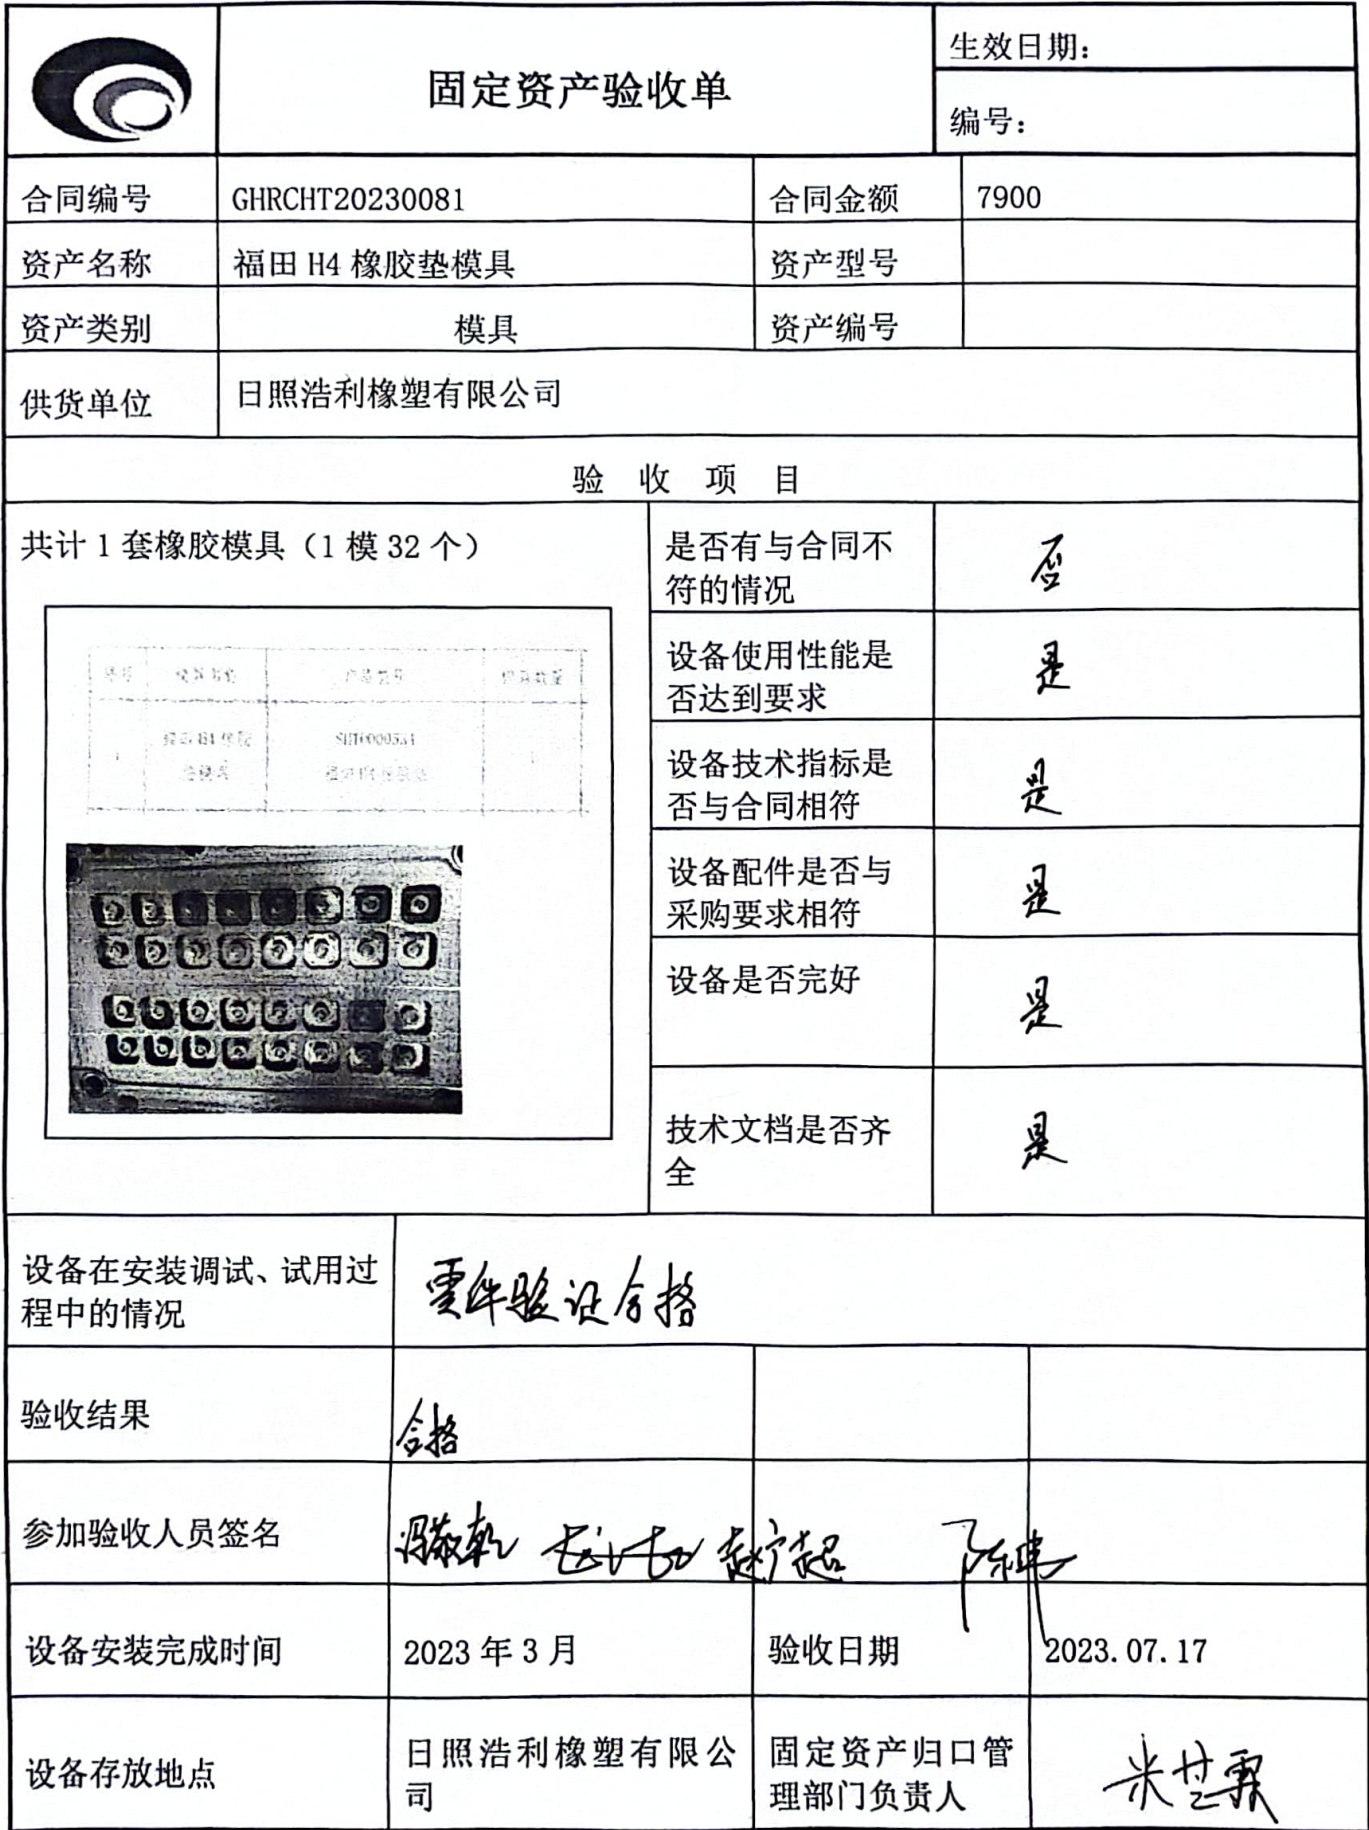 固定资产验收单
生效日期：
编号：
合同编号 GHRCHT20230081 合同金额 7900
资产名称 福田 H4 橡胶垫模具 资产型号
资产类别 模具 资产编号
供货单位 日照浩利橡塑有限公司
验 收 项 目
共计 1 套橡胶模具（1 模 32 个）
是否有与合同不
符的情况
否
设备使用性能是
否达到要求
是
设备技术指标是
否与合同相符
是
设备配件是否与
采购要求相符
是
设备是否完好
是
技术文档是否齐
全
是
设备在安装调试、试用过
程中的情况
零件验证合格
验收结果
合格
参加验收人员签名
赵广超 陈伟
设备安装完成时间 2023 年 3 月 验收日期 2023.07.17
设备存放地点
日照浩利橡塑有限公
司
固定资产归口管
理部门负责人